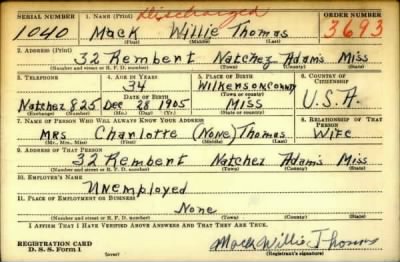 Discharged
SERIAL NUMBER 1. NAME (Print) ORDER NUMBER
1040 Mack Willie Thomas 3693
(First) (Middle) (Last)
2. ADDRESS (Print)
32 Rembert Natchez Adams Miss
(Number and street or R. F. D. number) (Town) (County) (State)
3. TELEPHONE 4. AGE IN YEARS 5. PLACE OF BIRTH 6. COUNTRY OF CITIZENSHIP
34 Wilkerson County
DATE OF BIRTH (Town or county)
Natchez 825 Dec 28 1905 Miss U.S.A.
(Exchange) (Number) (Mo.) (Day) (Yr.) (State or country)
7. NAME OF PERSON WHO WILL ALWAYS KNOW YOUR ADDRESS 8. RELATIONSHIP OF THAT PERSON
Mrs Charlotte (None) Thomas Wife
(Mr., Mrs., Miss) (First) (Middle) (Last)
9. ADDRESS OF THAT PERSON
32 Rembert Natchez Adams Miss
(Number and street or R. F. D. number) (Town) (County) (State)
10. EMPLOYER'S NAME
Unemployed
11. PLACE OF EMPLOYMENT OR BUSINESS
None
(Number and street or R. F. D. number) (Town) (County) (State)
I AFFIRM THAT I HAVE VERIFIED ABOVE ANSWERS AND THAT THEY ARE TRUE.
REGISTRATION CARD
D. S. S. Form 1 (over) Mack Willie Thomas
(Registrant's signature)